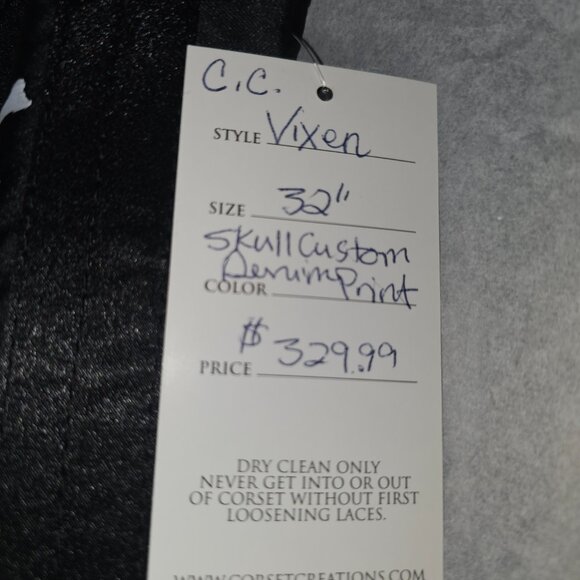 C.C.
STYLE Vixen
SIZE 32"
Skull Custom
Denim Print
COLOR
$ 329.99
PRICE
DRY CLEAN ONLY
NEVER GET INTO OR OUT
OF CORSET WITHOUT FIRST
LOOSENING LACES.
WWW.CORSETCREATIONS.COM